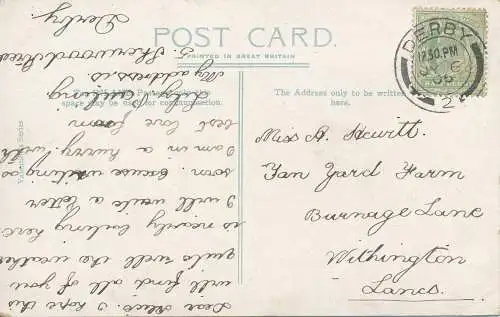 POST CARD.
PRINTED IN GREAT BRITAIN
The Address only to be written
here.
DERBY
12.50.PM
Miss A. Hewitt.
Tan Yard Farm
Burnage Lane
Withington
Lancs.
Dear Alice. I hope this
will find all of you
quite well the weather
is nicely here
I will write a letter
soon. excuse writing as
I am in a hurry. with
best love from
My address is
5. Sherwood Street
Derby.